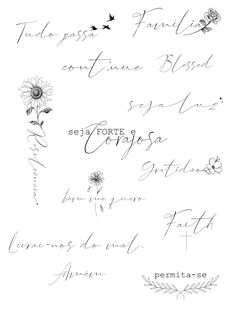 Tudo passa
Família
continue
Blessed
seja luz
Resiliência
seja FORTE e
Corajosa
Gratidão
bem me quero
Faith
Livrai-nos do mal.
Amém
permita-se